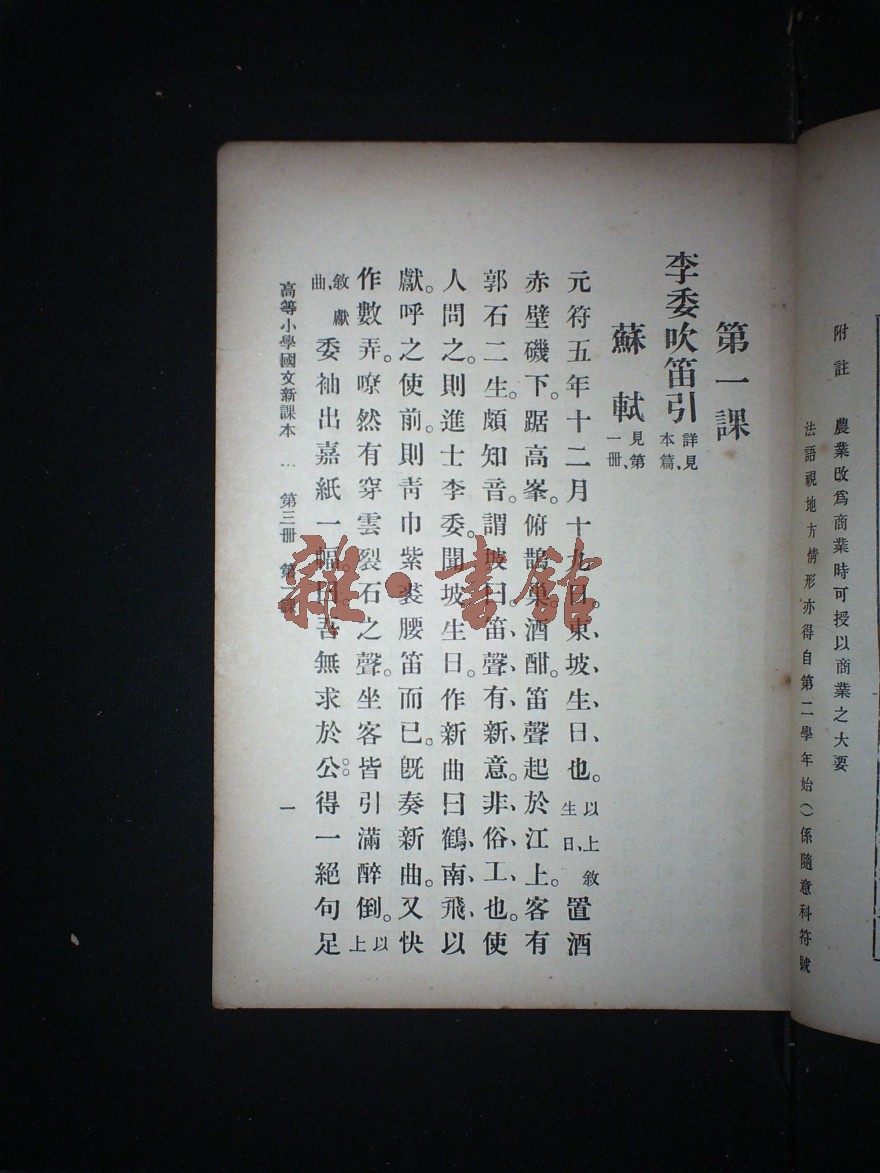 附註 農業改爲商業時可授以商業之大要
法語視地方情形亦得自第二學年始()係隨意科符號
第一課
李委吹笛引 詳見本篇、
蘇軾 見第一册、
元符五年十二月十九日。東、坡、生、日、也。以上敘生日、置酒
赤壁磯下。踞高峯。俯鵲巢。酒酣。笛聲起於江上。客有
郭石二生。頗知音。謂坡曰。笛、聲、有、新、意。非、俗、工、也。使
人問之。則進士李委。聞坡生日。作新曲曰鶴、南、飛、以
獻。呼之使前。則靑巾紫裘腰笛而已。旣奏新曲。又快
作數弄。嘹然有穿雲裂石之聲。坐客皆引滿醉倒。以上
敘獻曲、委袖出嘉紙一幅。曰。吾無求於公。得一絕句足
高等小學國文新課本 … 第三册 第一課 一
雜·書館